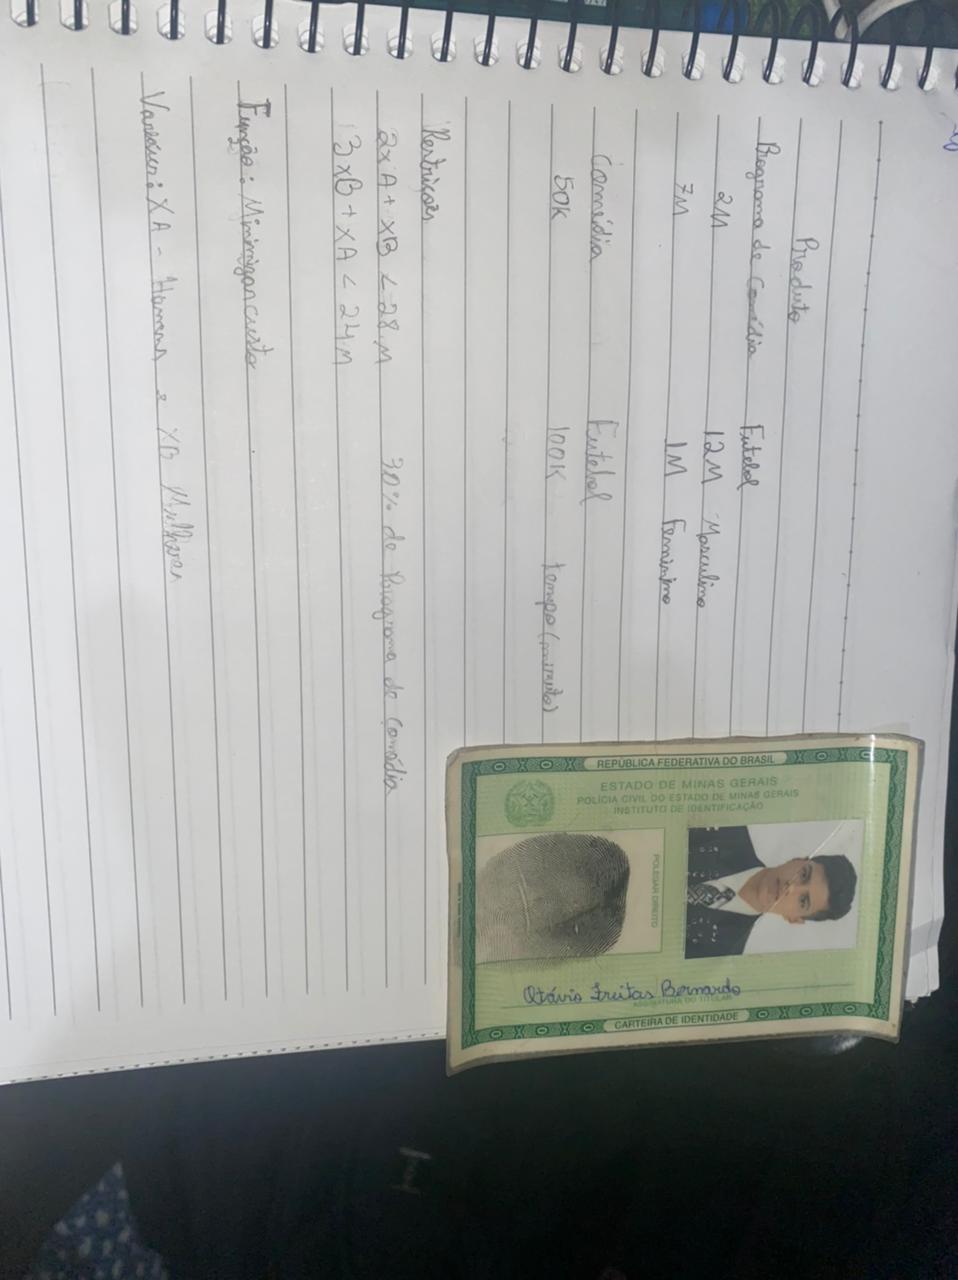 Produto
Programa de Comédia Futebol
2M 12M - Masculino
7M 1M Feminino
Comédia Futebol
50K 100K tempo (minuto)
Restrições
2xA + xB < 28M 30% de Programa de Comédia
3xB + xA < 24M
Função: Minimizar custo
xA - Homens e xB Mulheres
REPÚBLICA FEDERATIVA DO BRASIL
ESTADO DE MINAS GERAIS
POLÍCIA CIVIL DO ESTADO DE MINAS GERAIS
INSTITUTO DE IDENTIFICAÇÃO
POLEGAR DIREITO
Otávio Freitas Bernardo
ASSINATURA DO TITULAR
CARTEIRA DE IDENTIDADE